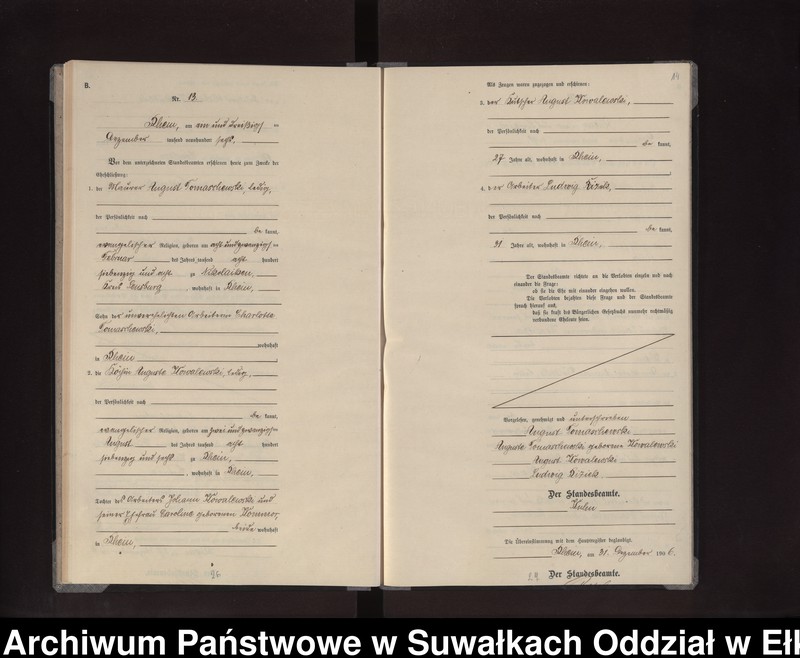 B.
Nr. 13.
Rhein, am ein und dreißigsten
Dezember tausend neunhundert sechs.
Vor dem unterzeichneten Standesbeamten erschienen heute zum Zwecke der
Eheschließung:
1. der Maurer August Tomaschewski, ledig,
der Persönlichkeit nach
be kannt,
evangelischer Religion, geboren am acht und zwanzigsten
Februar des Jahres tausend acht hundert
siebenzig und acht zu Nikolaiken,
Kreis Sensburg, wohnhaft in Rhein,
Sohn der unverehelichten Arbeiterin Charlotte
Tomaschewski,
wohnhaft
in Rhein
2. die Köchin Auguste Kowalewski, ledig,
der Persönlichkeit nach
be kannt,
evangelischer Religion, geboren am zwei und zwanzigsten
August des Jahres tausend acht hundert
siebenzig und sechs zu Rhein,
, wohnhaft in Rhein,
Tochter des Arbeiters Johann Kowalewski und
seiner Ehefrau Caroline geborenen
beide wohnhaft
in Rhein,
96
14
Als Zeugen waren zugezogen und erschienen:
3. der August Kowalewski,
der Persönlichkeit nach
be kannt,
27 Jahre alt, wohnhaft in Rhein,
4. der Arbeiter Ludwig
der Persönlichkeit nach
be kannt,
31 Jahre alt, wohnhaft in Rhein,
Der Standesbeamte richtete an die Verlobten einzeln und nach
einander die Frage:
ob sie die Ehe mit einander eingehen wollen.
Die Verlobten bejahten diese Frage und der Standesbeamte
sprach hierauf aus,
daß sie kraft des Bürgerlichen Gesetzbuchs nunmehr rechtmäßig
verbundene Eheleute seien.
Vorgelesen, genehmigt und unterschrieben
August Tomaschewski
Auguste Tomaschewski geborene Kowalewski
August Kowalewski
Ludwig
Der Standesbeamte.
Die Übereinstimmung mit dem Hauptregister beglaubigt.
Rhein, am 31. Dezember 1906.
Der Standesbeamte.
Archiwum Państwowe w Suwałkach Oddział w Ełk